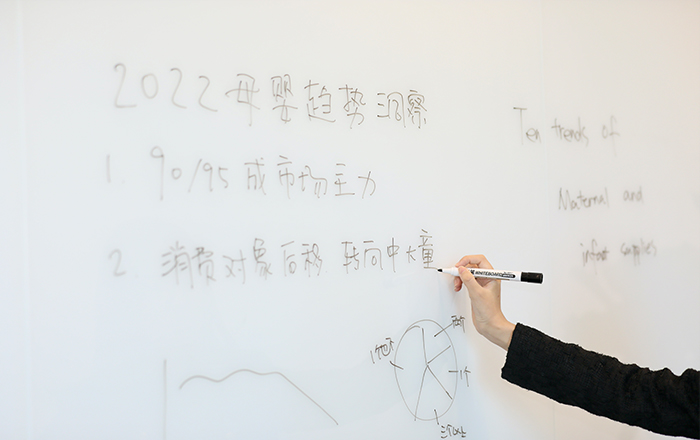 2022母婴趋势洞察
1. 90/95成市场主力
2. 消费对象后移 转向中大童
Ten trends of
Maternal and
infant supplies
WHITEBOARD
两个
1个
三个以上